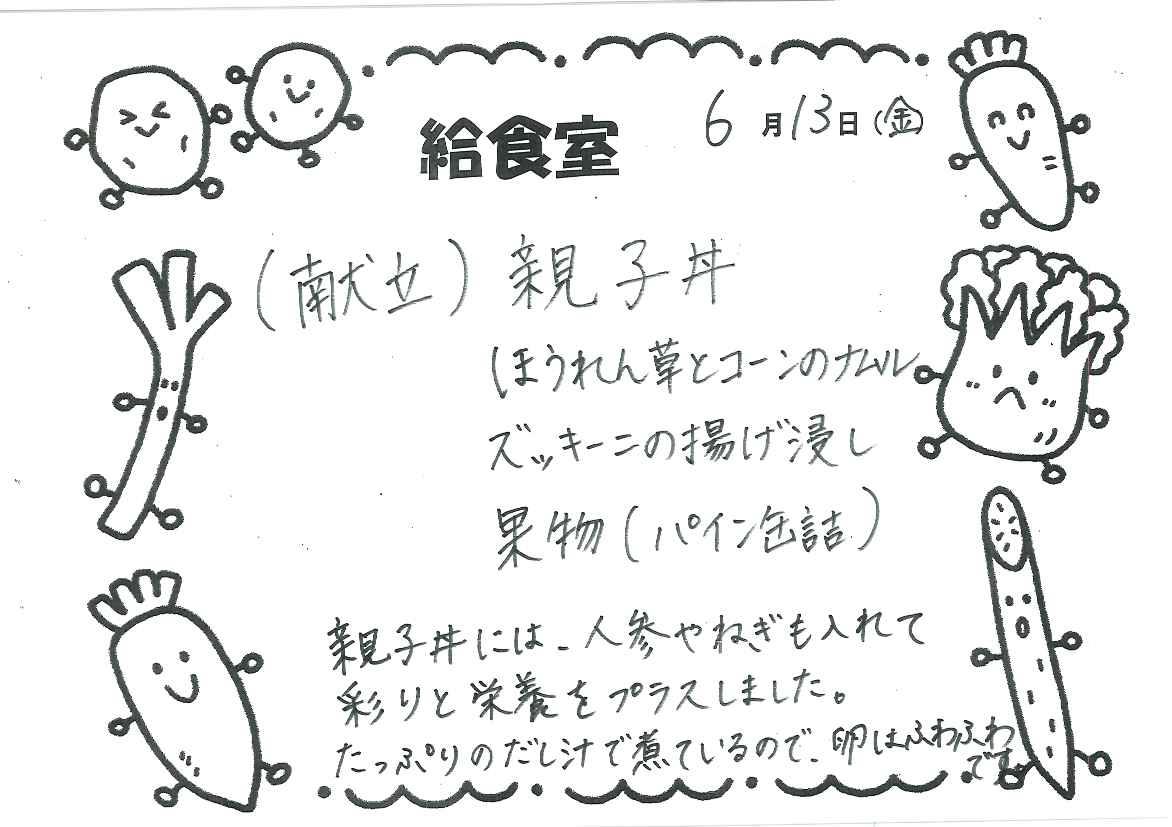 給食室
6月13日(金)
(献立)親子丼
ほうれん草とコーンのナムル
ズッキーニの揚げ浸し
果物(パイン缶詰)
親子丼には、人参やねぎも入れて
彩りと栄養をプラスしました。
たっぷりのだし汁で煮ているので、卵はふわふわ
です。